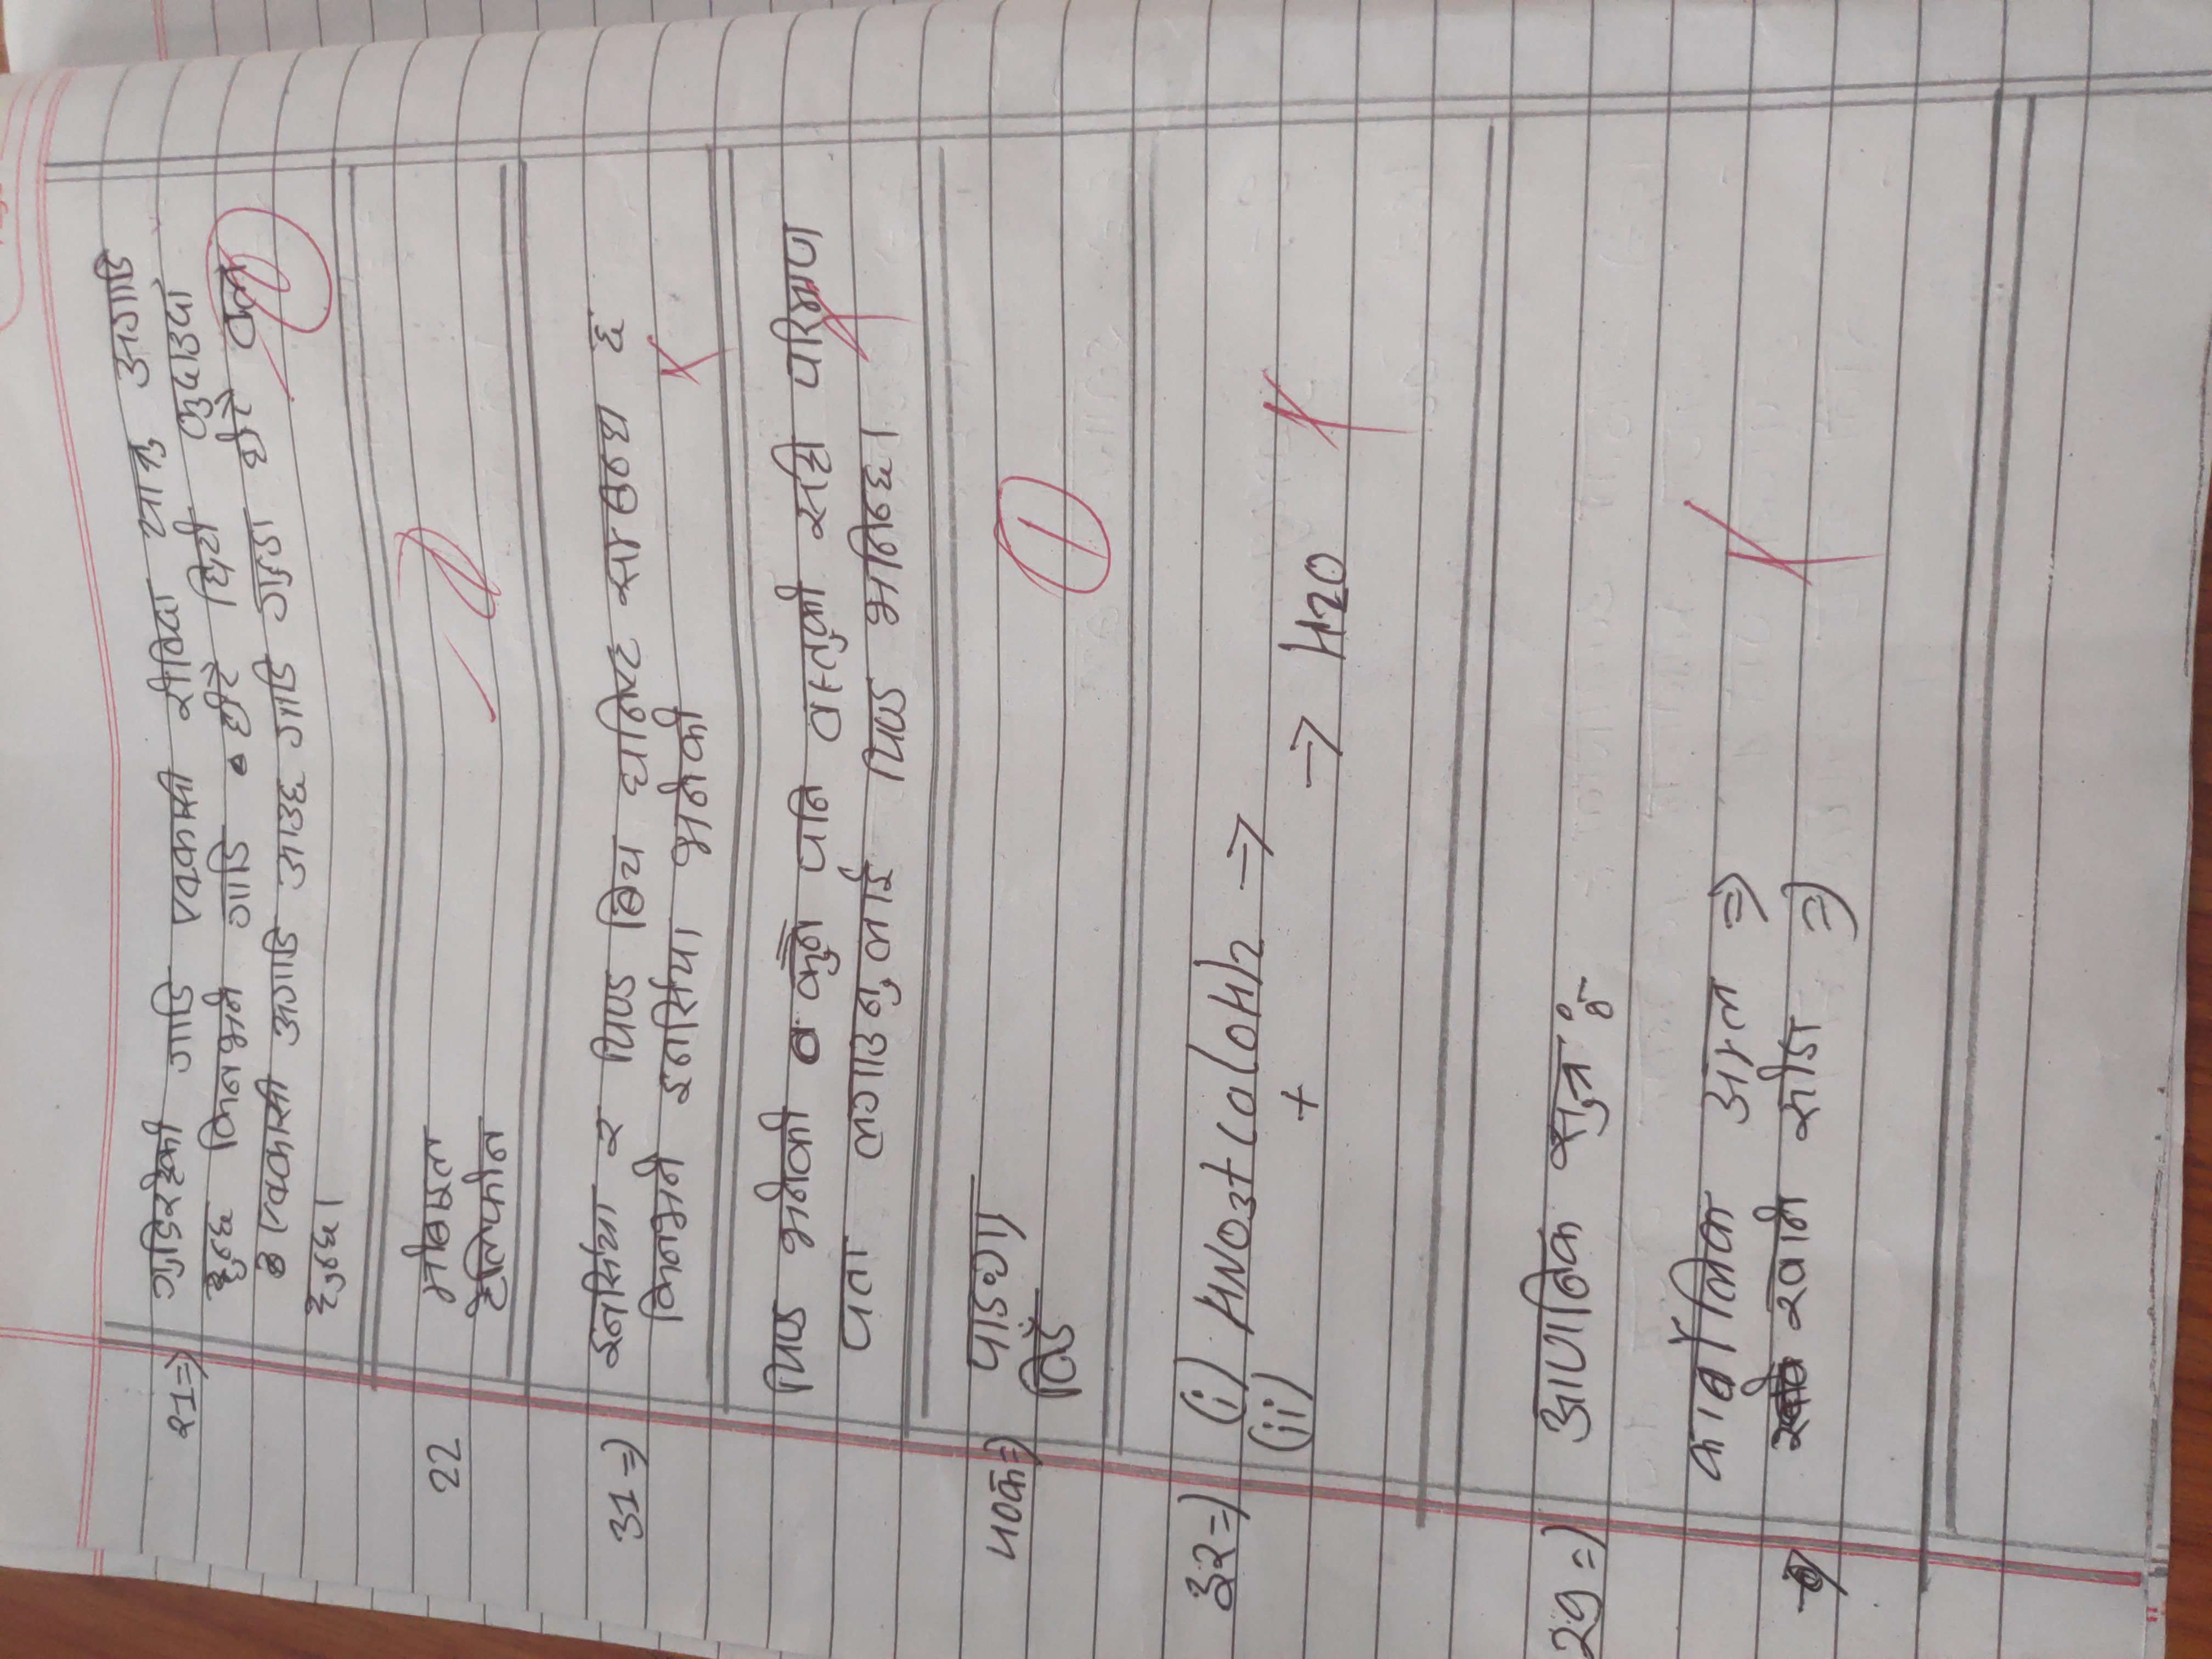 21⇒) गुडिरहेको गाडि एक्कासी रोकिदा यात्रु अगाडि
हुन्छ किनभने गाडि धेरै छिटो कुदाउदा
एक्कासी अगाडि आउछ गाडि गुड्दा धेरै बल
हुन्छ।
22 मोबाइल
टेलिफोन
31⇒) इनर्सिया र पिण्ड बिच घनिष्ट सम्बन्ध छ
किनभने इनर्सिया भनेको
पिण्ड भनेको कुनै पनि वस्तुको सही परिमाण
पता लगाउनुलाई पिण्ड भनिन्छ।
40क⇒) पाङ्ग्रा
बिडँ
1
३२⇒) (i) HNO3+Ca(OH)2 →
(ii) + → H2O
२९⇒) आणबिक सुत्र :-
कार्बोलिक अम्ल ⇒)
खाने सोडा ⇒)